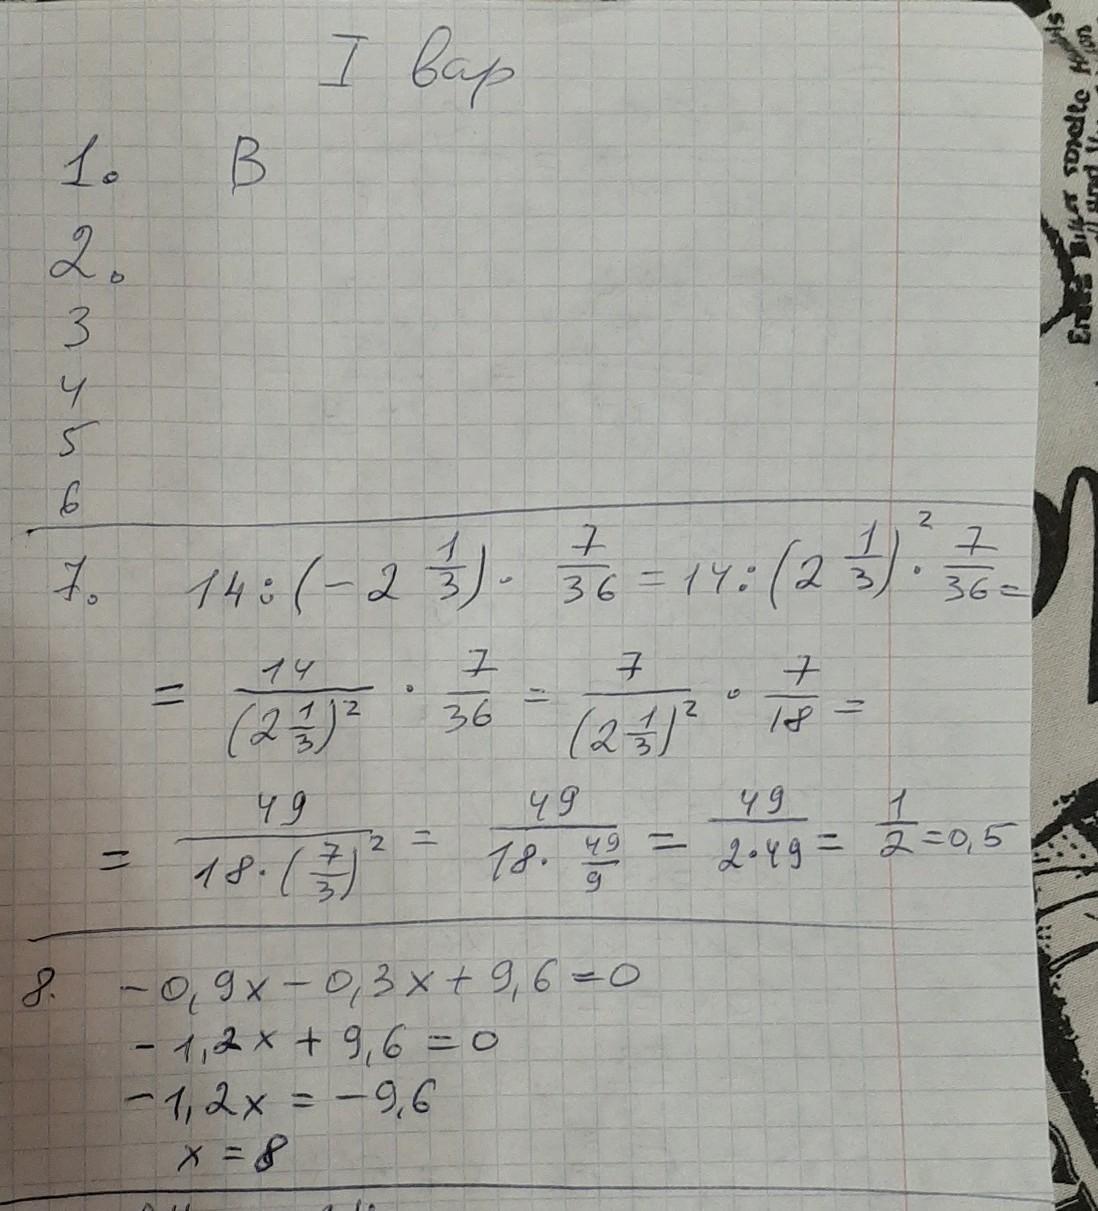 I вар
1. В
2.
3
4
5
6
7. 14:(-2 1/3)· 7/36 = 14:(2 1/3)² · 7/36 =
= 14/(2 1/3)² · 7/36 = 7/(2 1/3)² · 7/18 =
= 49/(18·(7/3)²) = 49/(18· 49/9) = 49/(2·49) = 1/2 = 0,5
8. -0,9x-0,3x+9,6=0
-1,2x+9,6=0
-1,2x=-9,6
x=8